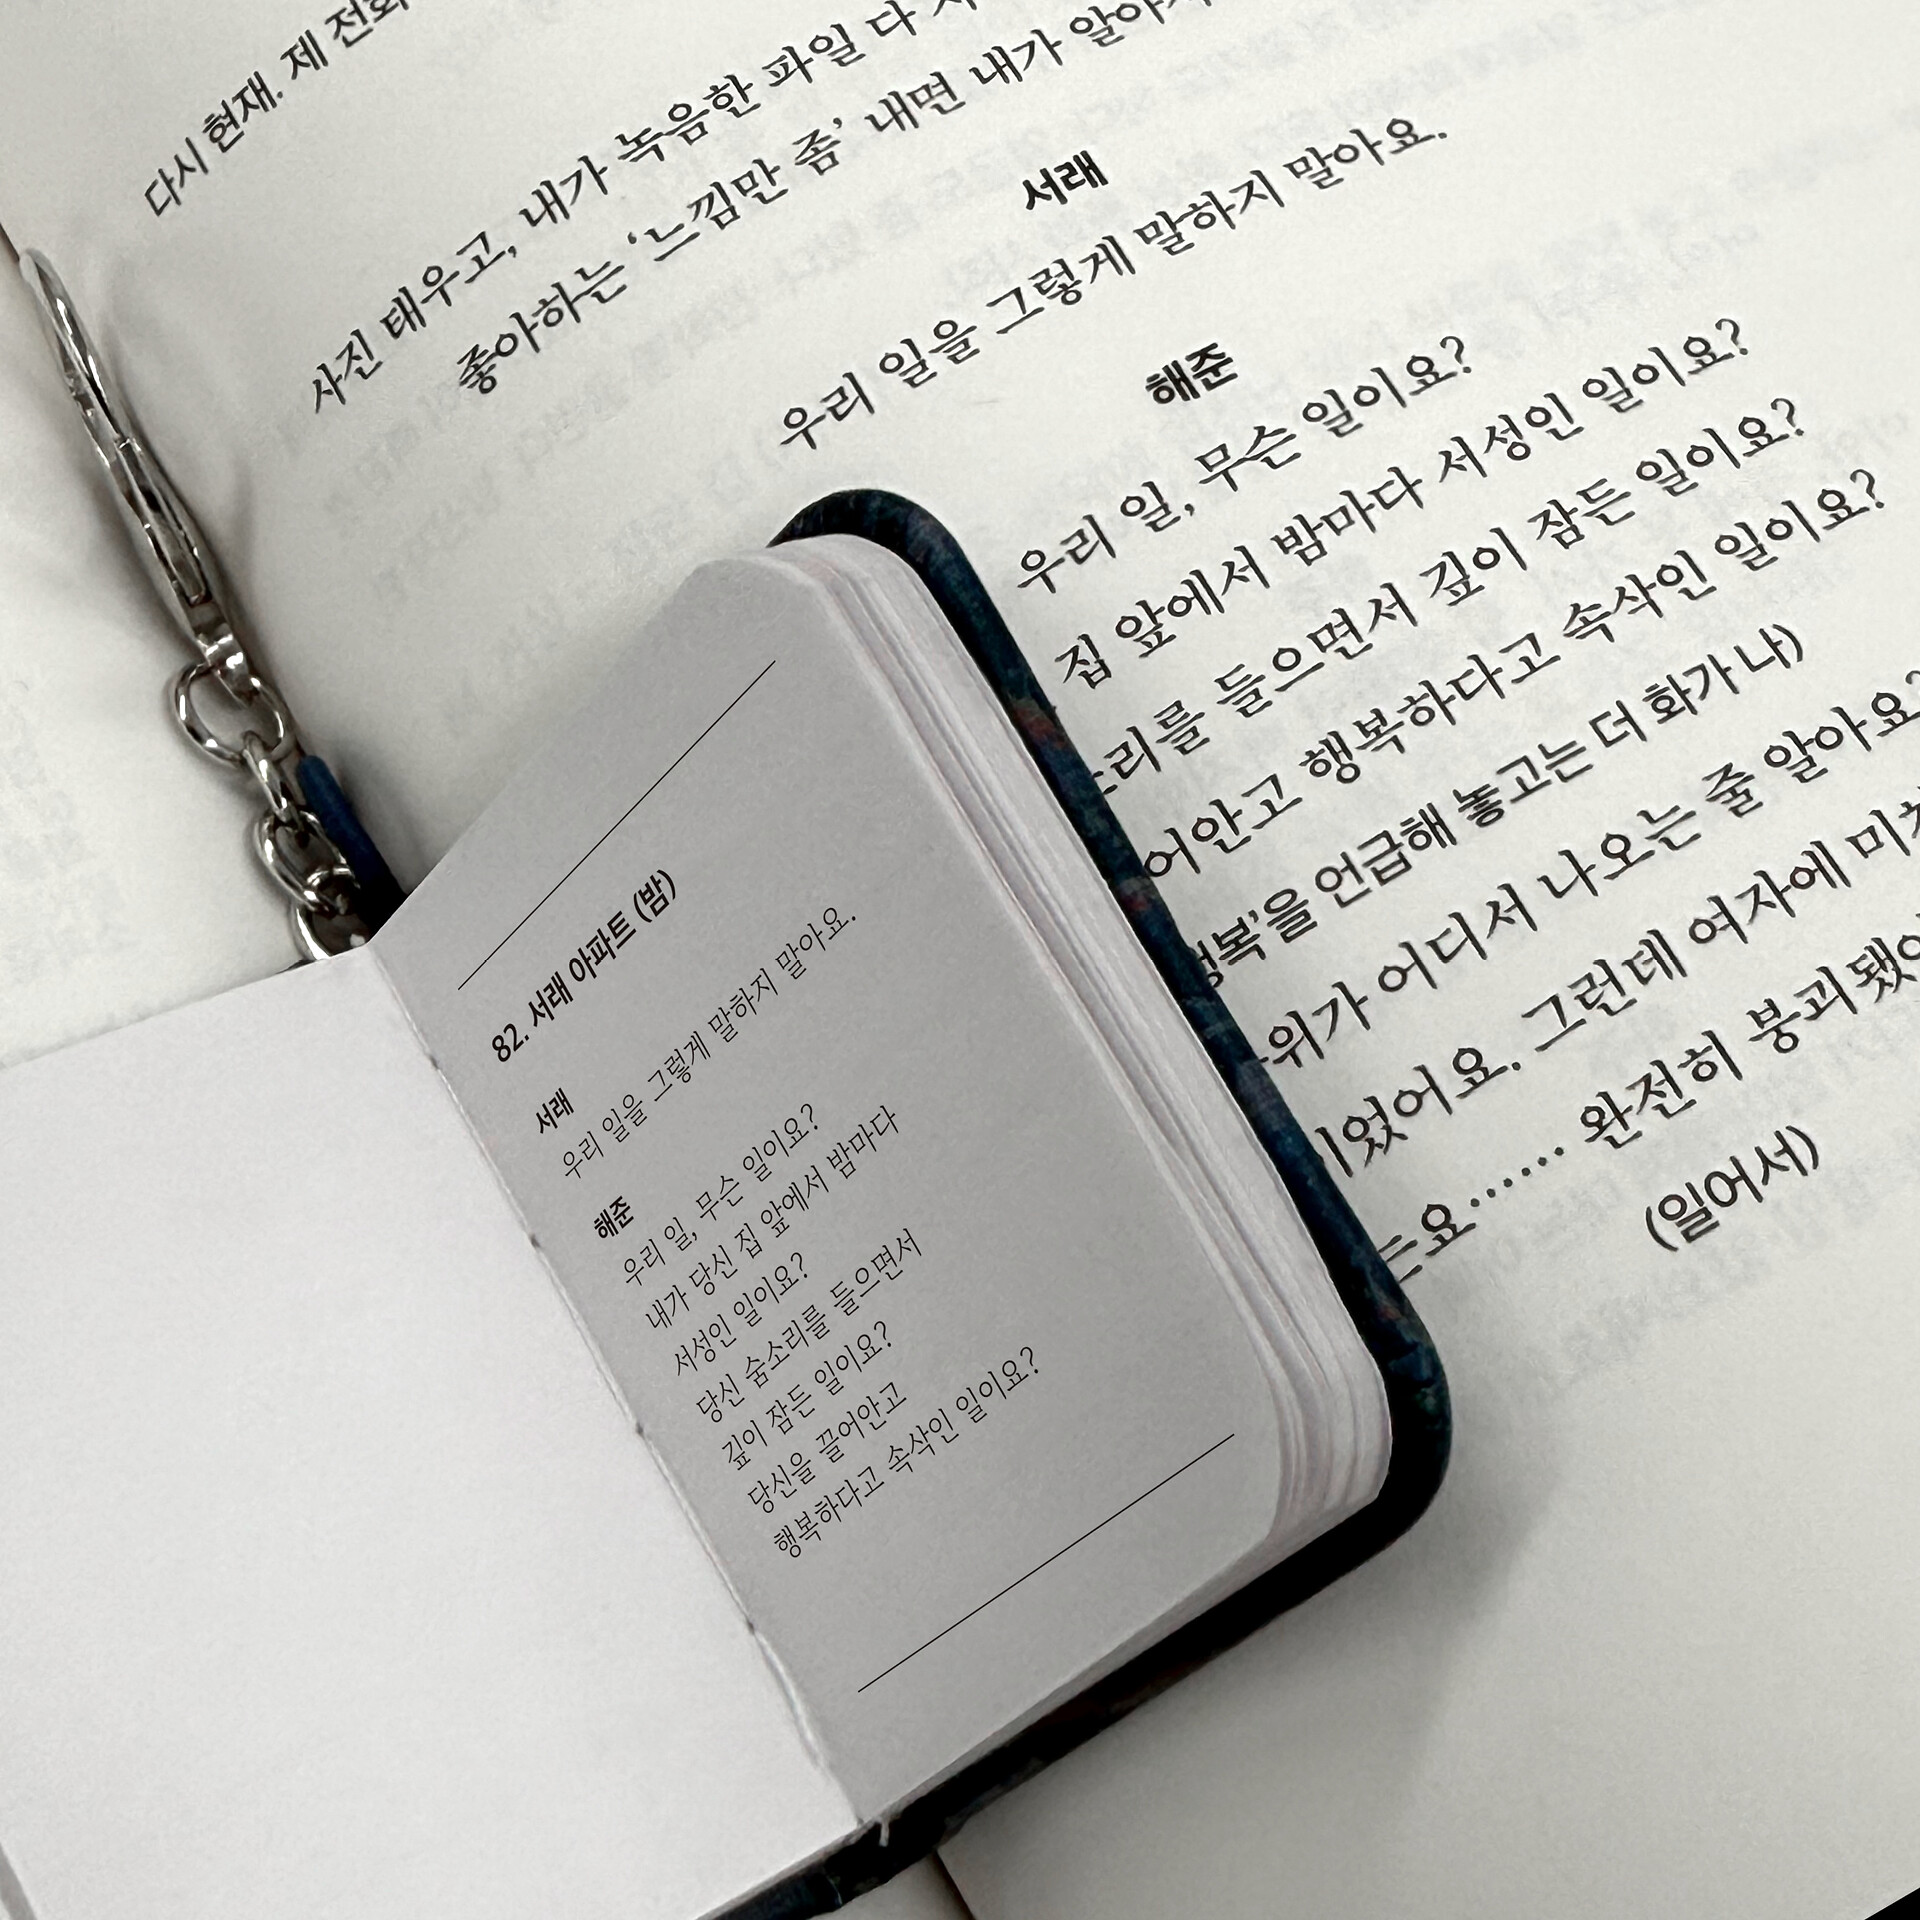 다시 현재. 제 전화
사진 태우고, 내가 녹음한 파일 다
좋아하는 ‘느낌만 좀’ 내면 내가
서래
우리 일을 그렇게 말하지 말아요.
해준
우리 일, 무슨 일이요?
집 앞에서 밤마다 서성인 일이요?
들으면서 깊이 잠든 일이요?
행복하다고 속삭인 일이요?
언급해 놓고는 더 화가 나)
어디서 나오는 줄 알아요?
그런데 여자에
완전히
(일어서)
82. 서래 아파트 (밤)
서래
우리 일을 그렇게 말하지 말아요.
해준
우리 일, 무슨 일이요?
내가 당신 집 앞에서 밤마다
서성인 일이요?
당신 숨소리를 들으면서
깊이 잠든 일이요?
당신을 끌어안고
행복하다고 속삭인 일이요?